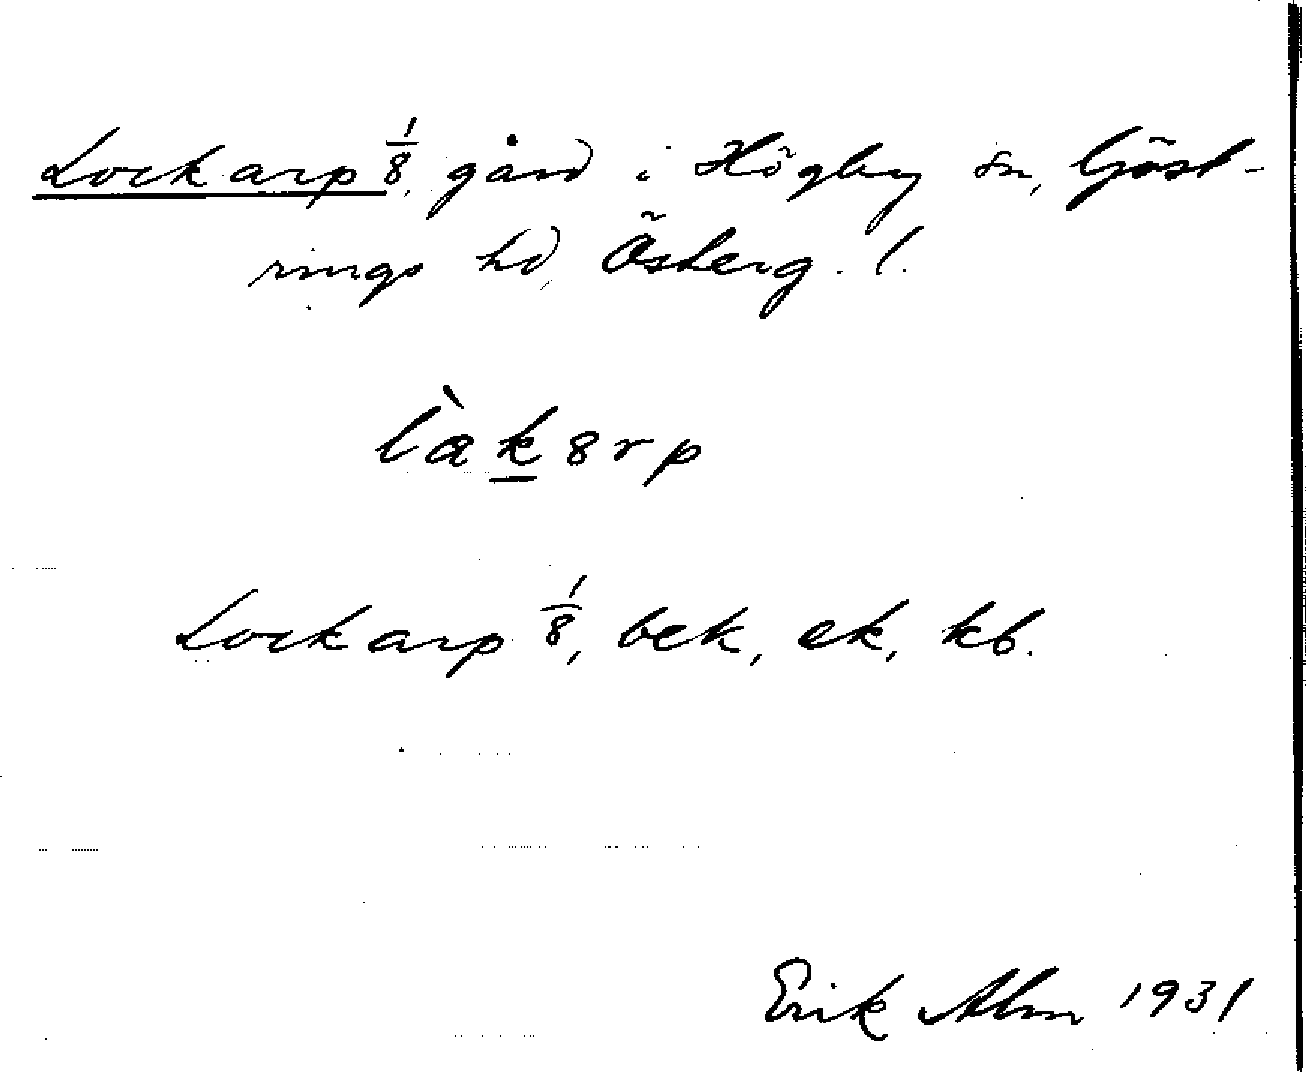 Lockarp 1/8, gård i Högby sn, Göst-
rings hd, Österg. l.
Lockarp 1/8, bek, ek, kb.
Erik Alm 1931